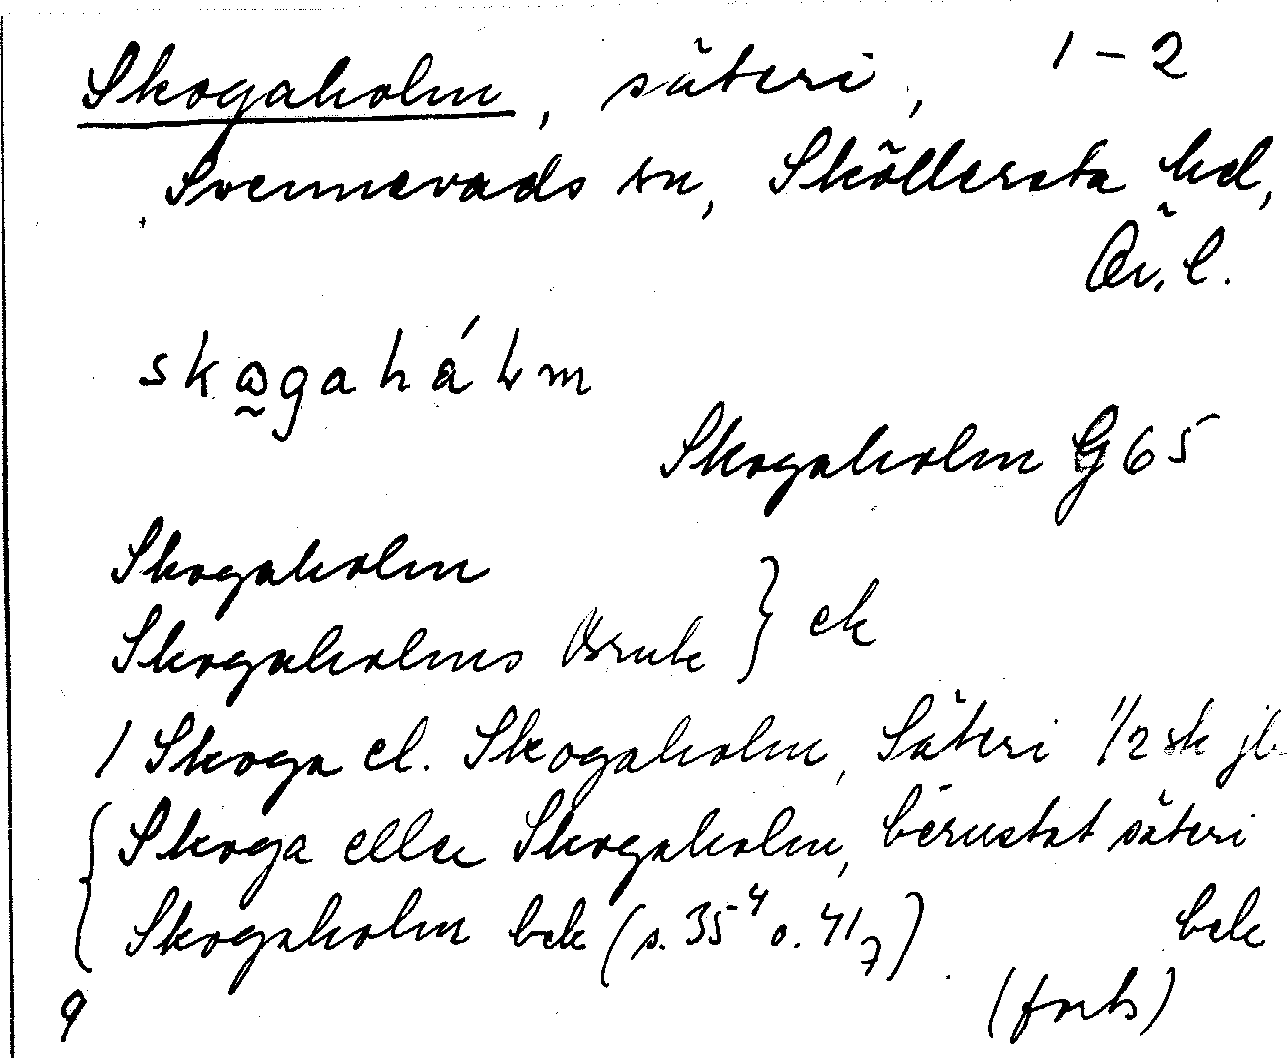 Skogaholm, säteri, 1-2
Svennevads sn, Sköllersta hd,
Ör. l.
Skogaholm G 65
Skogaholm
Skogaholms Bruk } ek
1 Skoga el. Skogaholm, Säteri 1/2 sk jb
Skoga eller Skogaholm, berustat säteri
Skogaholm bek (s. 35⁴ o. 41₇) bek
(forts)
9